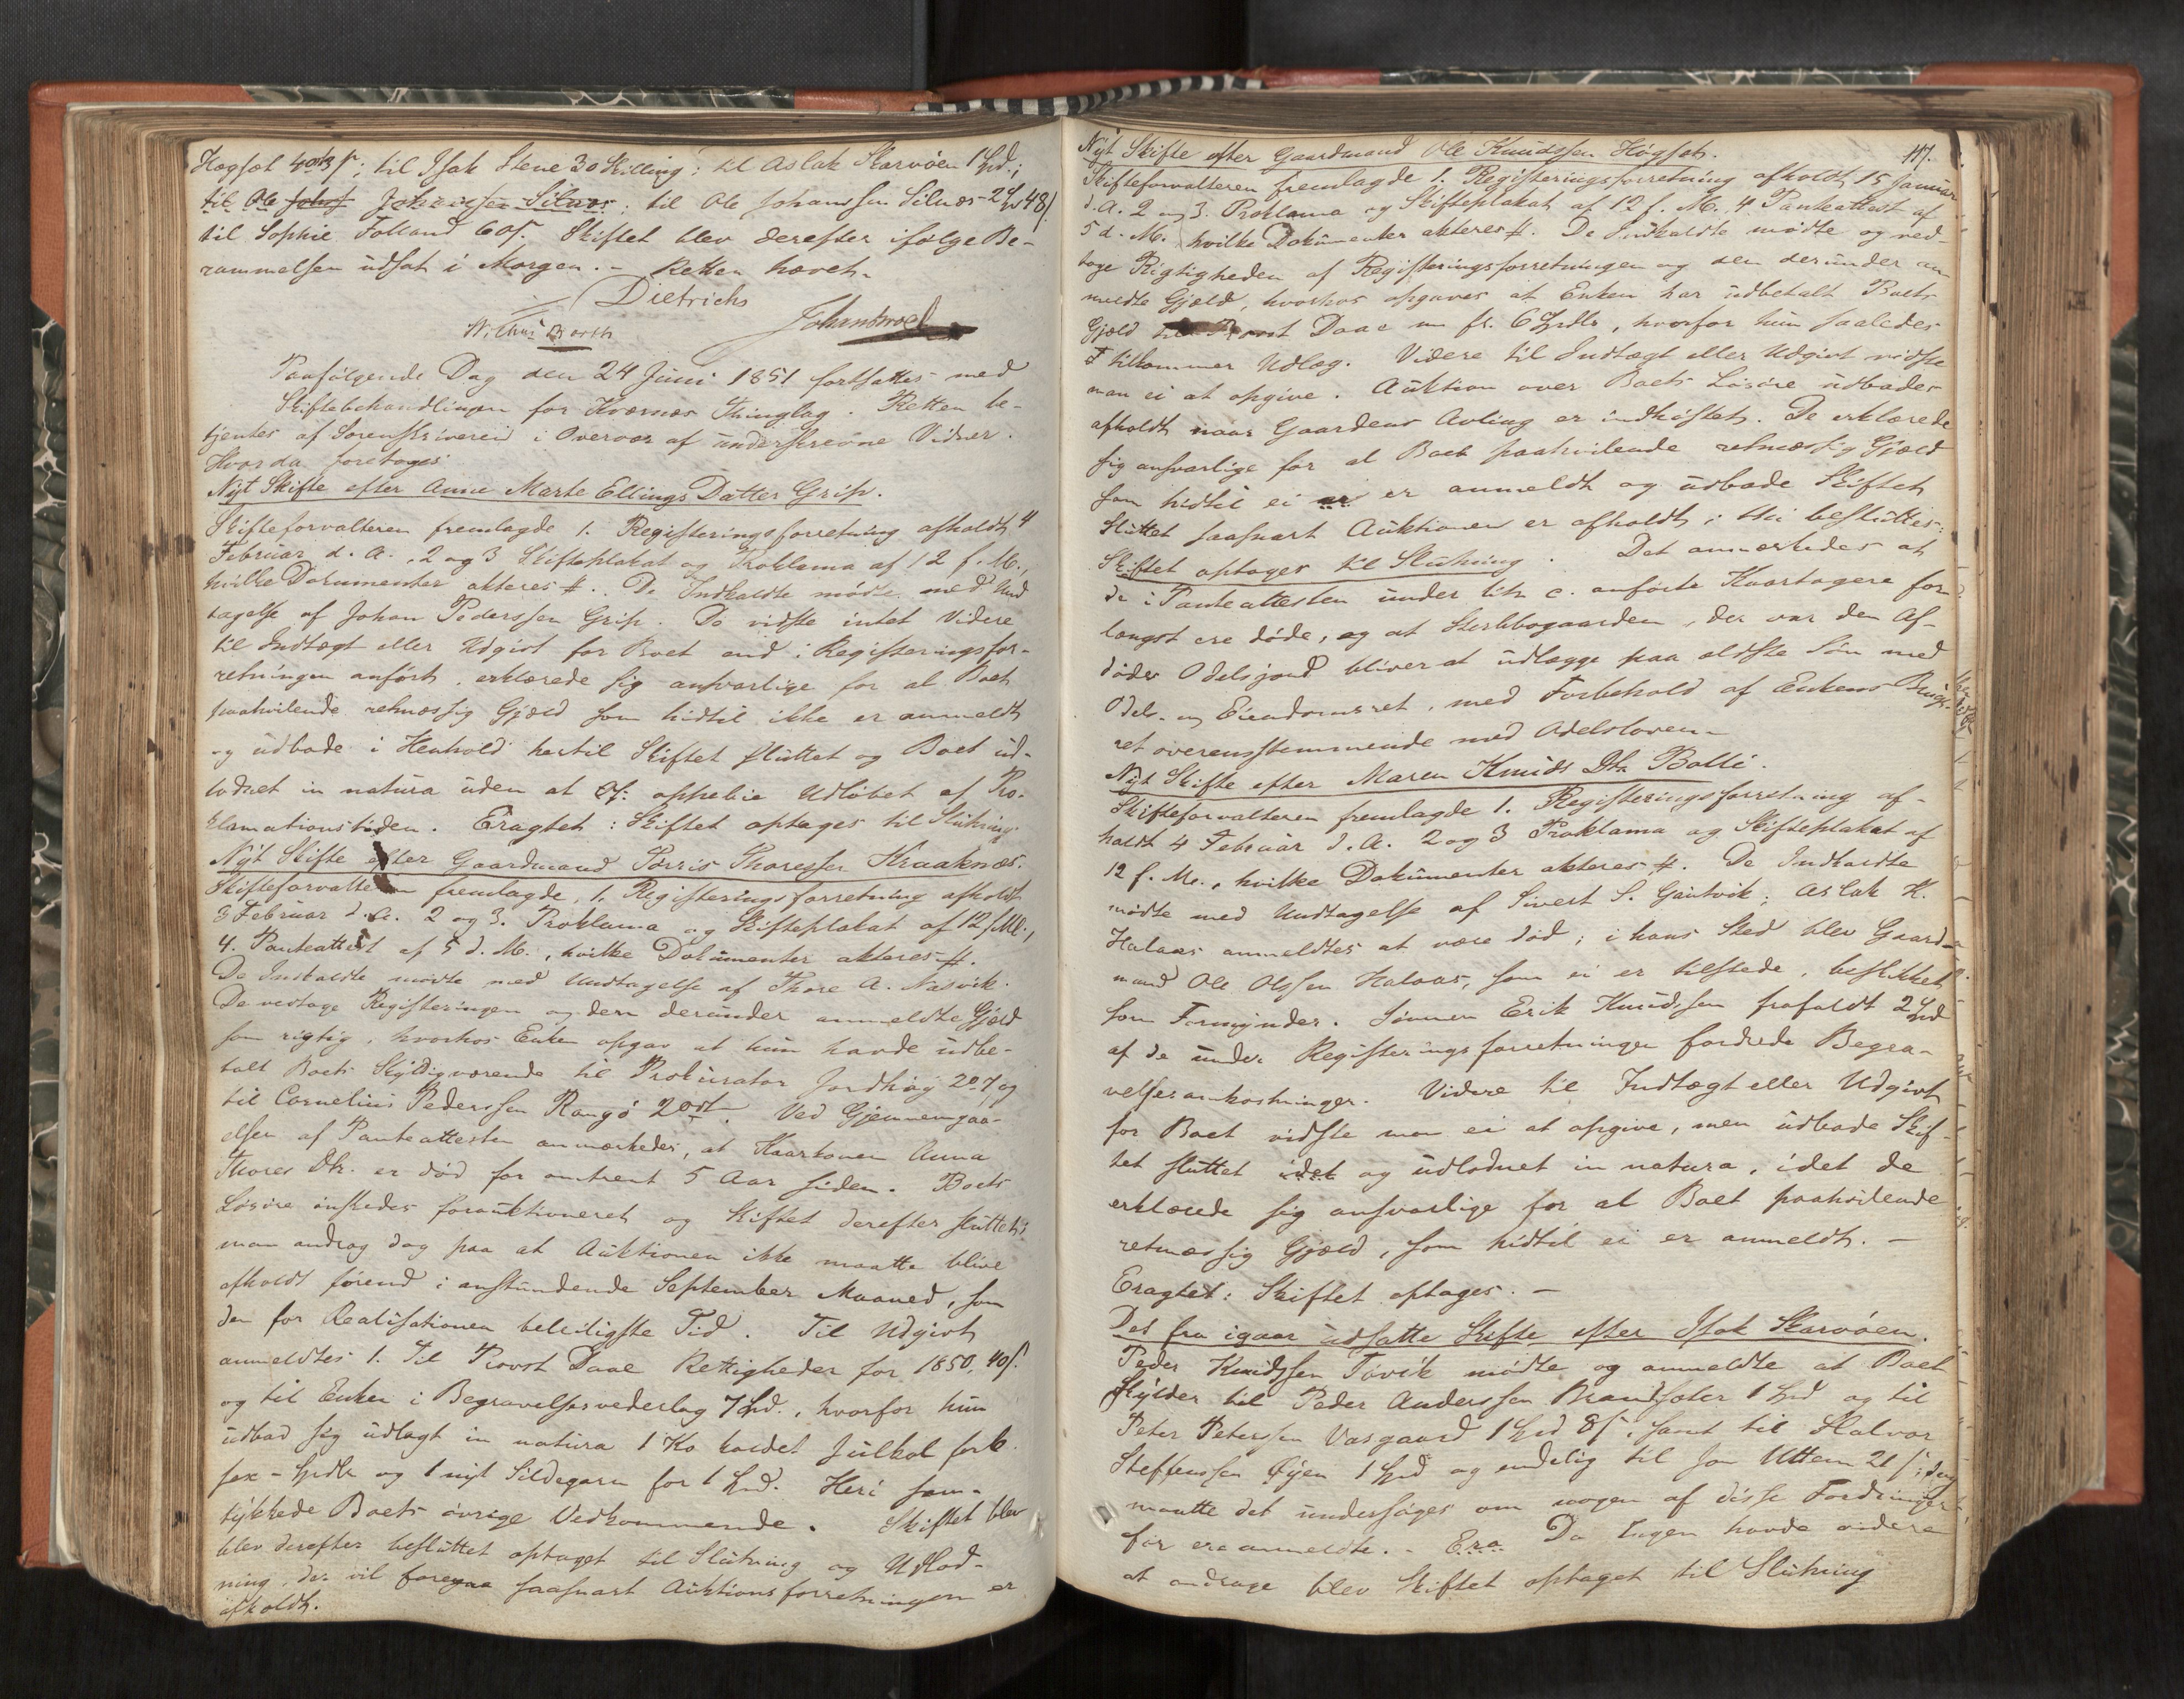 Høgsæt 40 β; til Isak Stene 30 Skilling; til Aslak Skarvøen 1 Spd.;
til Ole Johs Johansen Silnæs; til Ole Johanssen Silnæs 2 Spd 48 β
til Sophie Folland 60 β. Skiftet blev derefter ifølge Be-
rammelsen udsat i Morgen. - Retten hævet.
Dietrichs
Paafølgende Dag den 24 Juni 1851 fortsattes med
Skiftebehandlingen for Kværnæs Thinglag. Retten be-
tjentes af Sorenskriveren i Overvær af underskrevne Vidner.
Hvorda foretoges
Nyt Skifte efter Anne Marte Ellings Datter Grip.
Skifteforvalteren fremlagde 1. Registeringsforretning afholdt 4
Februar d. A., 2 og 3 Skifteplakat og Proklama af 12 f. M.,
hvilke Documenter akteres #. De Indkaldte mødte med Und
tagelse af Johan Pederssen Grip. De vidste intet Videre
til Indtægt eller Udgivt for Boet end i Registeringsfor-
retningen anført, erklærede sig ansvarlige for al Boet
paahvilende retmæssig Gjæld som hidtil ikke er anmeldt
og udbade i Henhold hertil Skiftet sluttet og Boet ud-
lodnet in natura uden at oppebie Udløbet af Pro-
klamationstiden. Eragtet: Skiftet optages til Slutning
Nyt Skifte efter Gaardmand Torris Thoressen Kraaknæs.
Skifteforvalteren fremlagde, 1. Registeringsforretning afholdt
6 Februar d. A. 2 og 3. Proklama og Skifteplakat af 12 f. M.,
4. Panteattest af 5 d. M., hvilke Dokumenter akteres #.
De Indkaldte mødte med Undtagelse af Thore A. Nasvik.
De vedtoge Registeringen og den derunder anmeldte Gjæld
som rigtig, hvorhos Enken opgav at hun havde udbe-
talt Boets Skyldigværende til Prokurator Jordhøy og
til Cornelius Pederssen Rangø 20 β. Ved Gjennemgaa-
elsen af Panteattesten anmærkedes, at Kaarkonen Anna
Thores Dtr. er død for omtrent 5 Aar siden. Boets
Løsøre ønskedes forauktioneret og Skiftet derefter sluttet;
man androg dog paa at Auktionen ikke maatte blive
afholdt førend i anstundende September Maaned, som
den for Realisationen beleiligste Tid. Til Udgivt
anmeldtes 1. Til Provst Daae Rettigheder for 1850, 40 β.
og til Enken i Begravelsesvederlag 7 Spd., hvorfor hun
udbad sig udlagt in natura 1 Ko kaldet Julkol for 6
sex - Spdlr og 1 nyt Sildegarn for 1 Spd. Heri sam-
tykkede Boets øvrige Vedkommende. Skiftet blev
blev derefter besluttet optaget til Slutning og Udlod-
ning, der vil foregaa saasnart Auktionsforretningen er
afholdt.
117.
Nyt Skifte efter Gaardmand Ole Knudssen Høgsæt.
Skifteforvalteren fremlagde 1. Registeringsforretning afholdt 15 Januar
d. A. 2 og 3. Proklama og Skifteplakat af 12 f. M., 4. Panteattest af
5 d. M. hvilke Dokumenter akteres #. De Indkaldte mødte og ved-
toge Rigtigheden af Registeringsforretningen og den derunder an-
meldte Gjæld, hvorhos opgaves at Enken har udbetalt Boets
Gjæld til Provst Daae 6 Spdlr, hvorfor hun saaledes
tilkommer Udlæg. Videre til Indtægt eller Udgivt vidste
man ei at opgive. Auktion over Boets Løsøre udbades
afholdt naar Gaardens Avling er indhøstet. De erklærede
sig ansvarlige for al Boet paahvilende retmæssig Gjæld
som hidtil ei er er anmeldt og udbade Skiftet
sluttet saasnart Auktionen er afholdt; thi besluttes:
Skiftet optages til Slutning. Det anmærkedes at
de i Panteattesten under litr c. anførte Kaartagere for
længst ere døde, og at Sterbbogaarden, der var den Af-
dødes Odelsjord bliver at udlægge paa ældste Søn med
Odels- og Eiendomsret, med Forbehold af Enkens Brugs-
ret overensstemmende med Odelsloven.
Nyt Skifte efter Maren Knuds Dtr. Bolli.
Skifteforvalteren fremlagde 1. Registeringsforretning af-
holdt 4 Februar d. A. 2 og 3 Proklama og Skifteplakat af
12 f. M., hvilke Dokumenter akteres #. De Indkaldte
mødte med Undtagelse af Sivert S. Gautvik; Aslak K.
Halaas anmeldtes at være død; i hans Sted blev Gaard-
mand Ole Olssen Halaas, som ei er tilstede, beskikket
som Formynder. Sønnen Erik Knudssen frafaldt 2 Spd
af de under Registeringsforretningen fordrede Begra-
velsesomkostninger. Videre til Indtægt eller Udgivt
for Boet vidste man ei at opgive, men udbade Skif-
tet sluttet idet og udlodnet in natura, idet de
erklærede sig ansvarlige for al Boet paahvilende
retmæssig Gjæld, som hidtil ei er anmeldt. -
Eragtet: Skiftet optages. -
Det fra igaar udsatte Skifte efter Isak Skarvøen.
Peder Knudssen Tøvik mødte og anmeldte at Boet
skylder til Peder Anderssen Brandsæter 1 Spd og til
Peter Peterssen Vasgaard 1 Spd 8 β, samt til Halvor
Steffenssen Øyen 1 Spd og endelig til Jon Uttem 21 β; dog
maatte det undersøges om nogen af disse Fordringer
før ere anmeldte. - Era Da Ingen havde videre
at andrage blev Skiftet optaget til Slutning